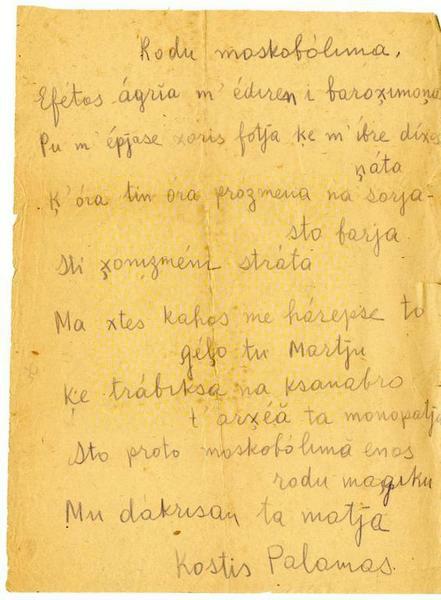 Rodu moskobólima.
Efétos ágria m' édiren i baroximoña
Pu m' épjase xoris fotja ķe m' íbre díxes
ņáta
Ķ'óra tin óra prozmena na sorja-
sto barja
Sti x̧oņizméni stráta
Ma xtes kahos me hárepse to
géļo tu Martju
Ķe trábiksa na ksanabro
t'arx̧éă ta monopatja
Sto proto moskobólimă enos
rodu magiku
Mu dákrisan ta matja
Kostis Palamas.